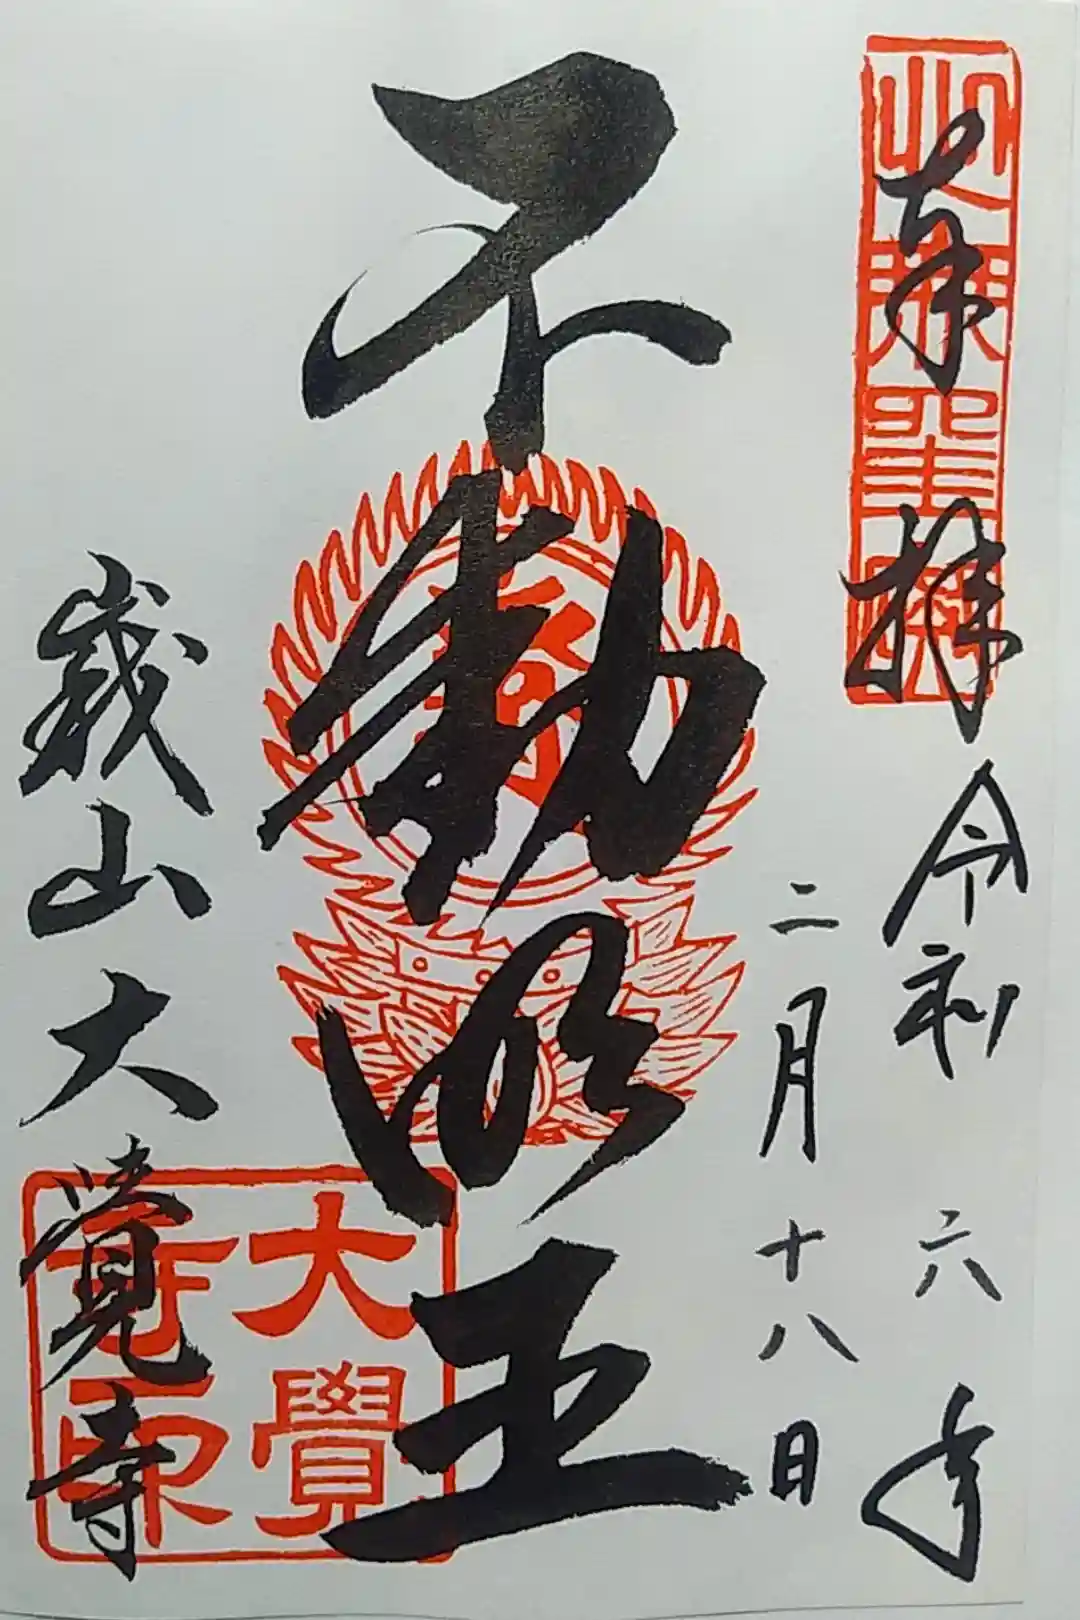 奉拝
令和六年
二月十八日
不動明王
嵯山大覚寺
大覺
寺印